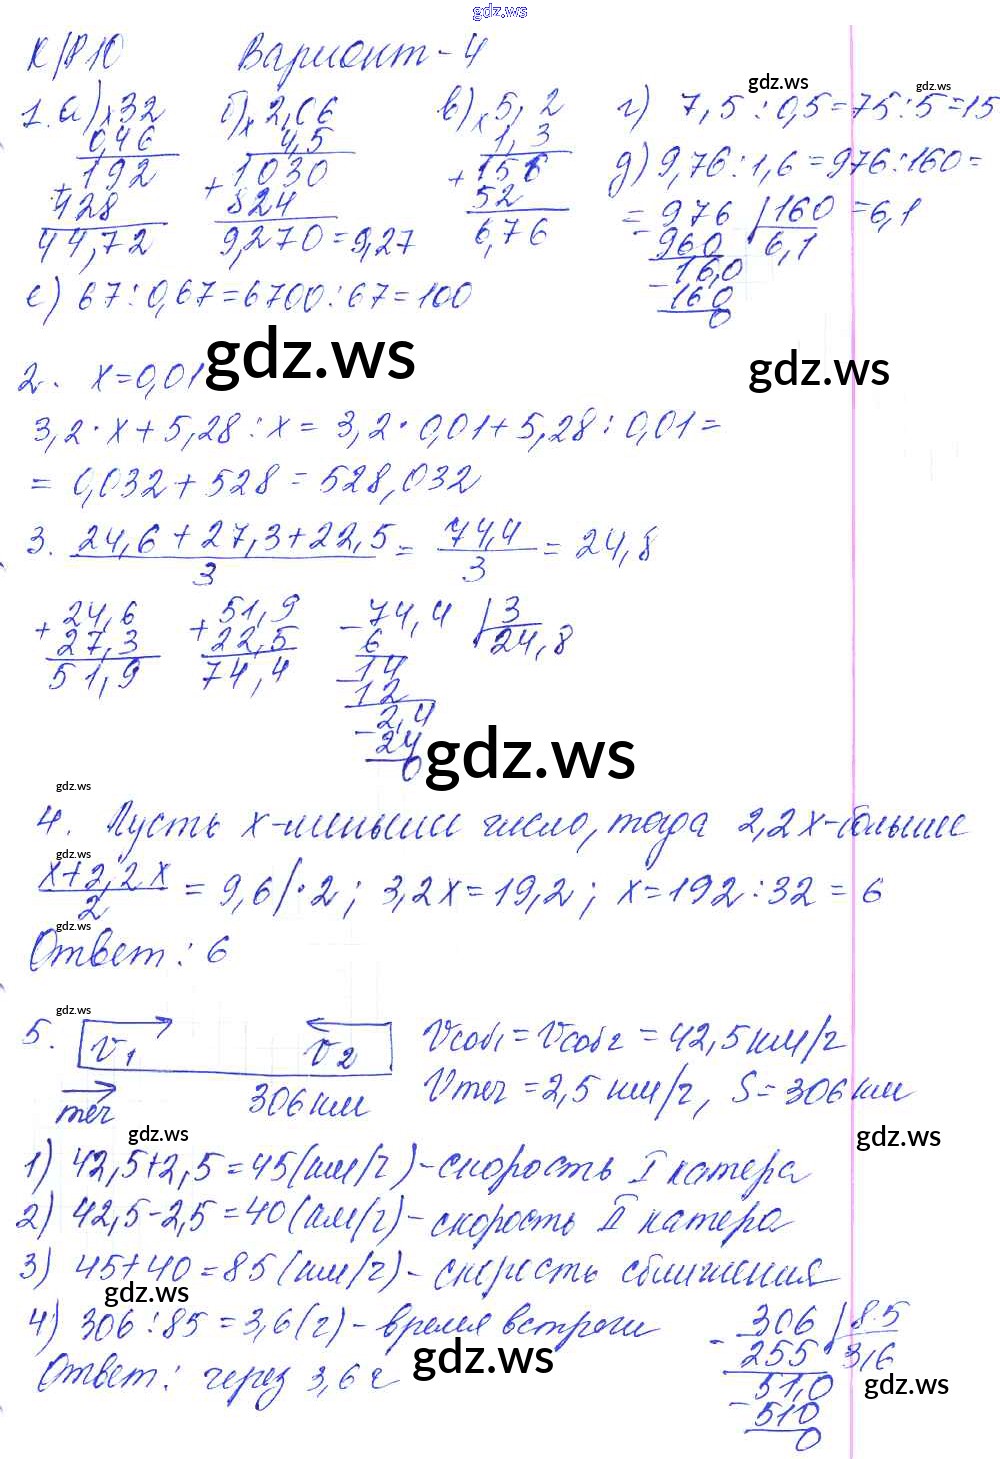 gdz.ws
К/Р10 Вариант-4
gdz.ws gdz.ws
1. а) ×32 б) ×2,06 в) ×5,2 г) 7,5:0,5=75:5=15
0,46 4,5 1,3
+192 +1030 +156 д) 9,76:1,6=976:160=
128 824 52 =-976 |160 =6,1
14,72 9,270=9,27 6,76 960 6,1
-16,0
160
0
е) 67:0,67=6700:67=100
gdz.ws gdz.ws
2. x=0,01
3,2·x+5,28:x= 3,2·0,01+5,28:0,01=
= 0,032+528=528,032
3. 24,6+27,3+22,5/3 = 74,4/3 = 24,8
+24,6 +51,9 -74,4 |3
27,3 22,5 6 24,8
51,9 74,4 -14
12
-2,4
24
0
gdz.ws
gdz.ws
4. Пусть x-меньшее число, тогда 2,2x-больше
gdz.ws
x+2,2x/2 = 9,6|·2; 3,2x=19,2; x=192:32=6
gdz.ws
Ответ: 6
gdz.ws
5. V1 V2 Vсоб1=Vсоб2=42,5км/ч
теч 306км Vтеч=2,5км/ч, S=306км
gdz.ws gdz.ws
1) 42,5+2,5=45(км/ч)-скорость I катера
2) 42,5-2,5=40(км/ч)-скорость II катера
3) 45+40=85(км/ч)-скорость сближения
gdz.ws
4) 306:85=3,6(ч)-время встречи -306 |85
gdz.ws 255 3,6
Ответ: через 3,6ч -51,0
gdz.ws
510
0